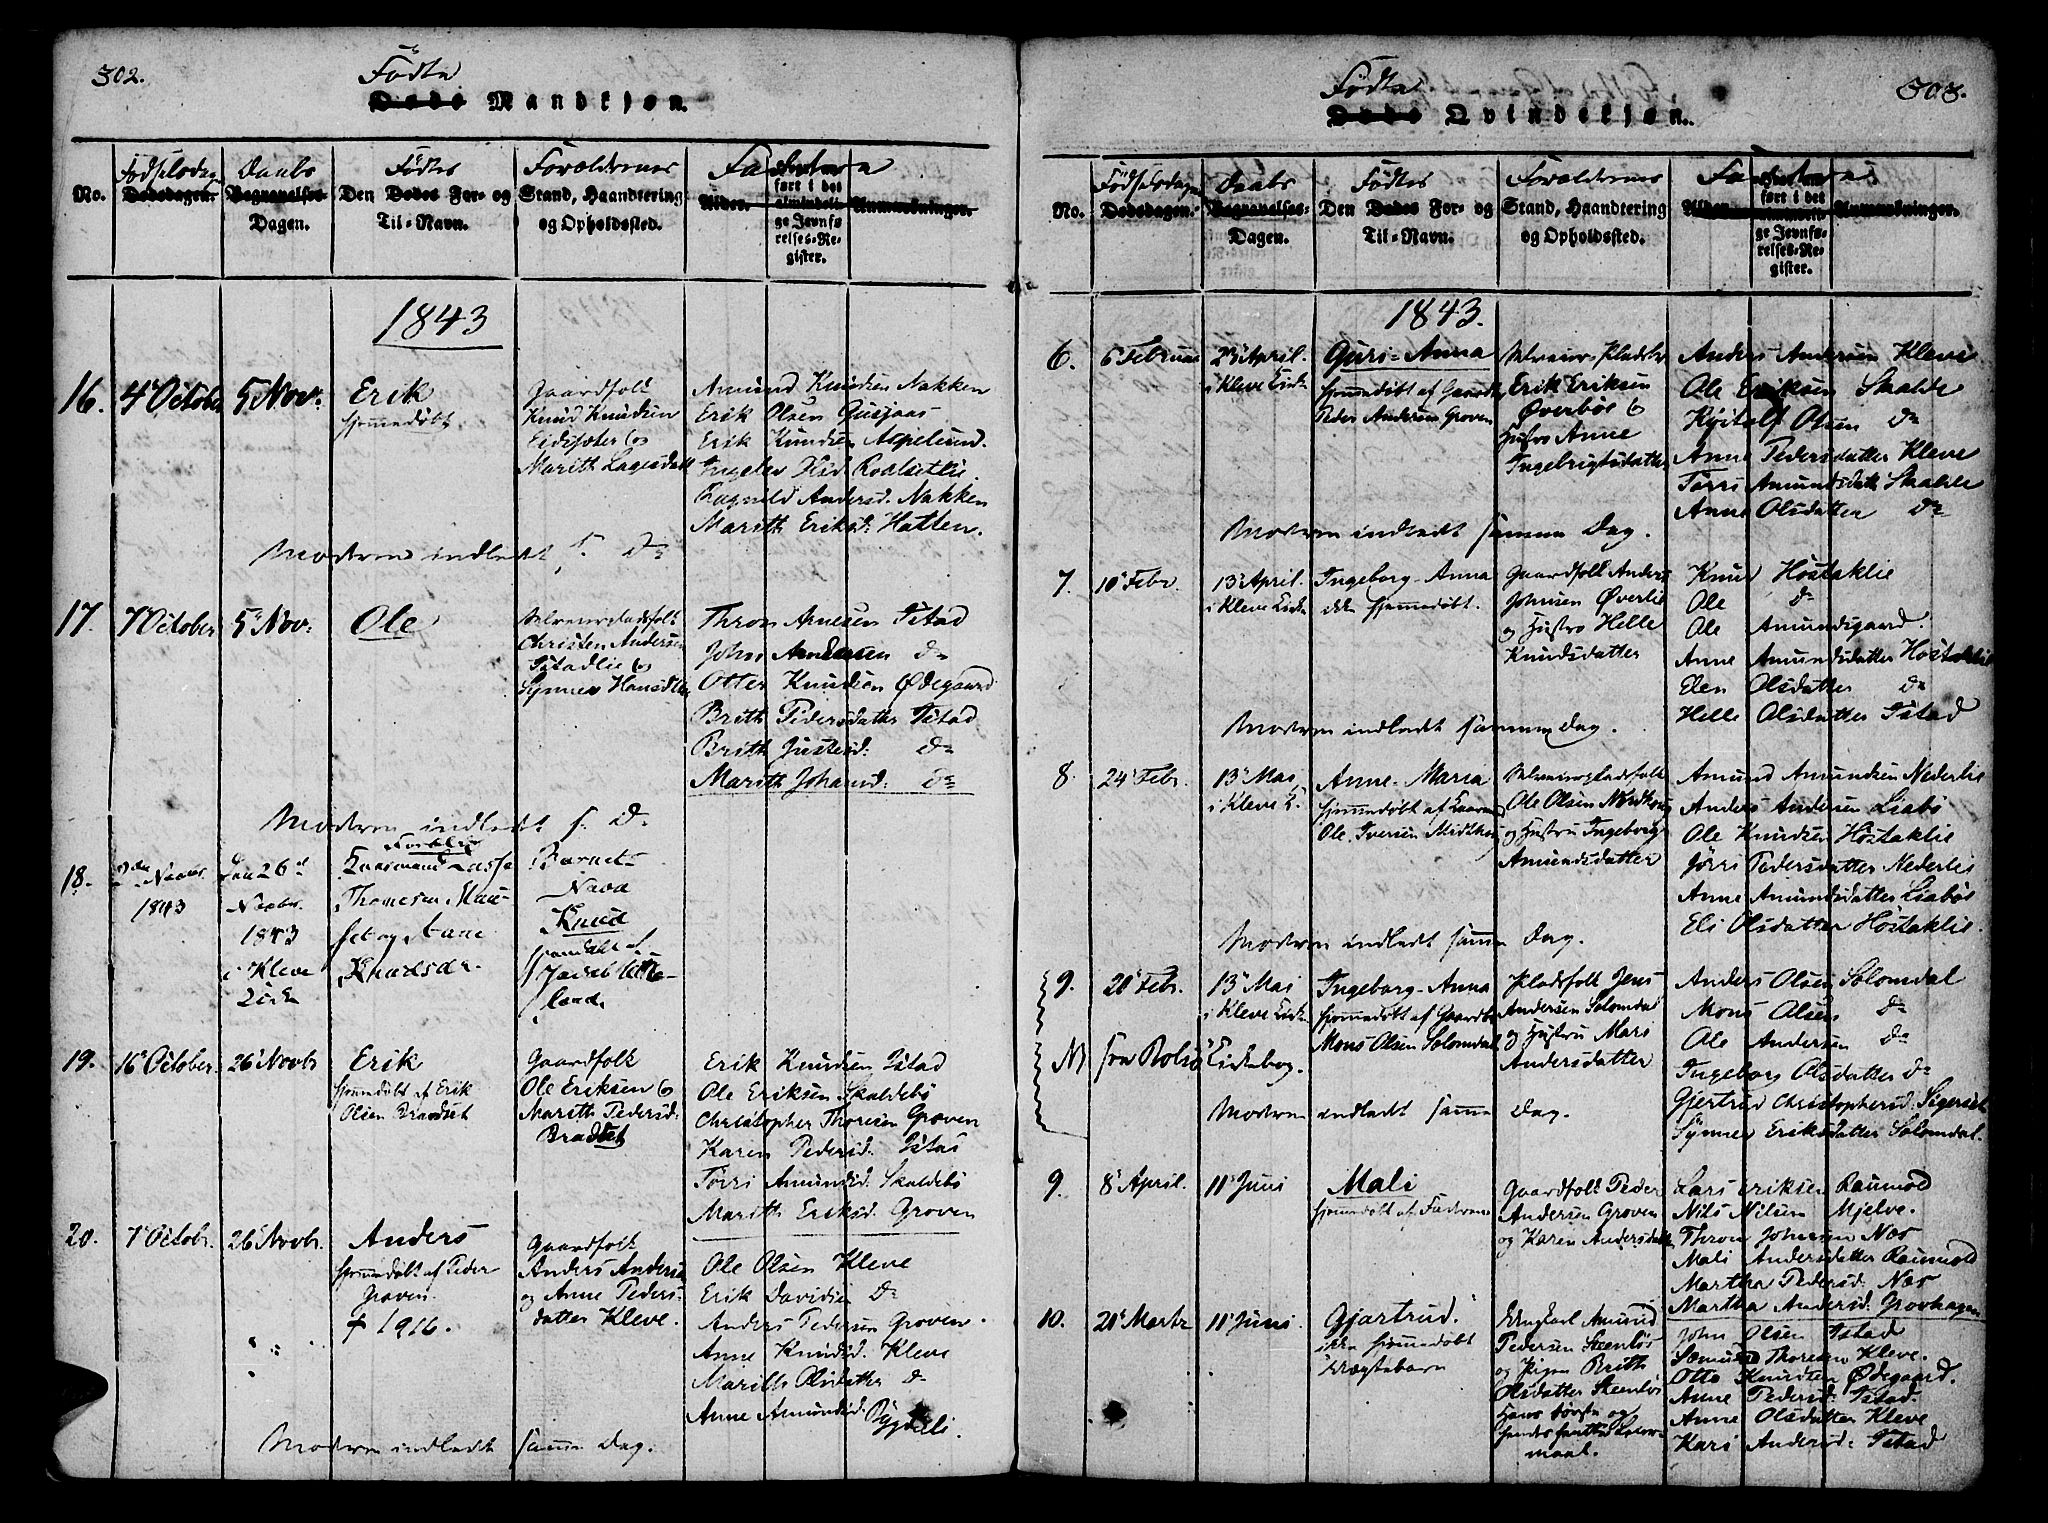 302.
Födte
Döde Mandkjøn.
No.
Födselsdagen
Dødsdagen.
Daabs
Begravelses-
Dagen.
Födtes
Den Dødes For- og
Til-Navn.
Forældrenes
Stand, Haandtering
og Opholdssted.
Alder.
ført i det
almindeli-
ge Jevnfø-
relses-Re-
gister.
Anmærkninger.
1843
16.
4 October
5 Nov:
Erik
hjemmedöbt
Gaardfolk
Knud Knudsen
Eidsæter og
Marith Lagesdatt
Amund Knudsen Nakken
Erik Olsen Gusjaas
Erik Knudsen Aspelund.
Ragnild Andersd. Nakken
Marith Eriksd: Hatten.
Moderen indledt s. D.
17.
7 October
5 Nov:
Ole
Christen Andersen
Istadlie og
Synnev Hansdtr
Thron Arnesen Istad
John Arnesen Do
Otter Knudsen Ødegaard
Brith Pedersdatter Istad
Brith Justesd: Do
Marith Johansd: Do
Moderen indledt s. D.
18.
1843
Den 26d
Novbr.
1843
i Kleve
Kirke
Thomesen
Knudsdr.
Barnets
Navn
Knud
19.
16 October
26 Novbr
Erik
hjemmedöbt af Erik
Olsen Bradset
Gaardfolk
Ole Eriksen og
Marith Pedersd.
Bradset
Erik Knudsen Istad
Ole Eriksen Skaldebö
Christopher Thoresen Groven
Karen Pedersd. Istad
Törri Amundsd. Skaldebö
Marith Eriksd. Groven
20.
7 Octobr.
26 Novbr.
Anders
hjemmedöbt af Peder
Groven.
† 1916.
Gaardfolk
Anders Andersen
og Anne Peders-
datter Kleve.
Ole Olsen Kleve
Erik Davidsen Do
Anders Pedersen Groven.
Anne Knudsd. Kleve
Marith Olsdatter Do
Anne Amundsd. Bygdeli
Moderen indledt samme Dag.
303.
Födte
Döde Qvindekjøn.
No.
Födselsdagen
Dødsdagen.
Daabs
Begravelses-
Dagen.
Födtes
Den Dødes For- og
Til-Navn.
Forældrenes
Stand, Haandtering
og Opholdssted.
Alder.
ført i det
almindeli-
ge Jevnfø-
relses-Re-
gister.
Anmærkninger.
1843.
6.
6 Februar
23 April.
i Kleve Kirk
Guri-Anna
hjemmedöbt af Gaardm
Peder Andersen Groven
Erik Eriksen
Överbös og
Hustro Anne
Ingebrigtsdatter
Anders Andersen Kleve
Ole Eriksen Skalde
Olsen Do
Anne Pedersdatter Kleve
Törri Amundsdatt Skalde
Anne Olsdatter Do
Moderen indledt samme Dag.
7.
10 Febr.
13 April.
i Kleve Kirk
Ingeborg-Anna
ikke hjemmedöbt.
Gaardfolk Anders
Johnsen Överlie
og Hustro Helle
Knudsdatter
Knud Höstaklie
Ole Do
Ole Amundsgaard.
Anne Amundsdatter Höstaklie
Elen Olsdatter Do
Helle Olsdatter Istad
Moderen indledt samme Dag.
8.
24 Febr.
13 Mai
i Kleve K.
Anne-Maria
Ole Iversen
Ole Olsen
og Hustru Ingeborg
Amundsdatter
Amund Amundsen Nederlie
Anders Andersen Liabö
Ole Knudsen Höstaklie
Jörri Pedersdatter Nederlie
Anne Amundsdatter Liabös
Eli Olsdatter Höstaklie.
Moderen indledt samme Dag.
9.
20 Febr.
13 Mai
i Kleve Kirk
Ingeborg-Anna
hjemmedöbt af Gaardbr
Mons Olsen Solemdal
Pladsfolk Jens
Andersen Solemdal
og Hustru Mari
Andersdatter
Anders Olsen Solomdal
Mons Olsen Do
Ole Andersen Do
Ingeborg Olsdatter Do
Gjertrud Christophersd. Sigerset
Synnev Eriksdatter Solomdal.
NB fra Bolsö Kirkebog.
Moderen indledt samme Dag.
9.
8 April.
11 Juni
Mali
hjemmedöbt af Faderen
Gaardfolk Peder
Andersen Groven
og Karen Andersdatt
Lars Eriksen Raumold
Nils Nilsen Mjelve.
Thron Johnsen Næs
Mali Andersdatter Raumold
Martha Pedersd. Næs
Martha Andersd. Grovhagen
10.
21 Martz
11 Juni.
Gjærtrud.
ikke hjemmedöbt
Uægtebarn
Ungkarl Amund
Pedersen Steenlös
og Pigen Brith
Olsdatter Steenlös
Hans förste og
hendes
maal.
John Olsen Istad
Thoresen Kleve.
Otto Knudsen Ødegaard.
Anne Pedersd. Istad.
Anne Olsdatter Kleve
Kari Andersd: Istad